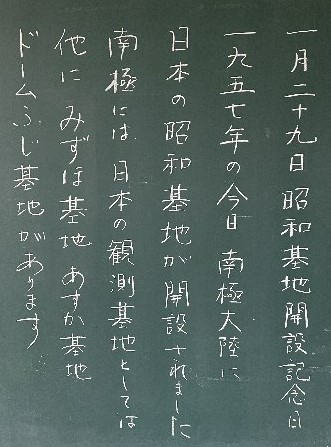 一月二十九日昭和基地開設記念日
一九五七年の今日 南極大陸に
日本の昭和基地が開設されました
南極には 日本の観測基地としては
他に みずほ基地 あすか基地
ドームふじ基地があります